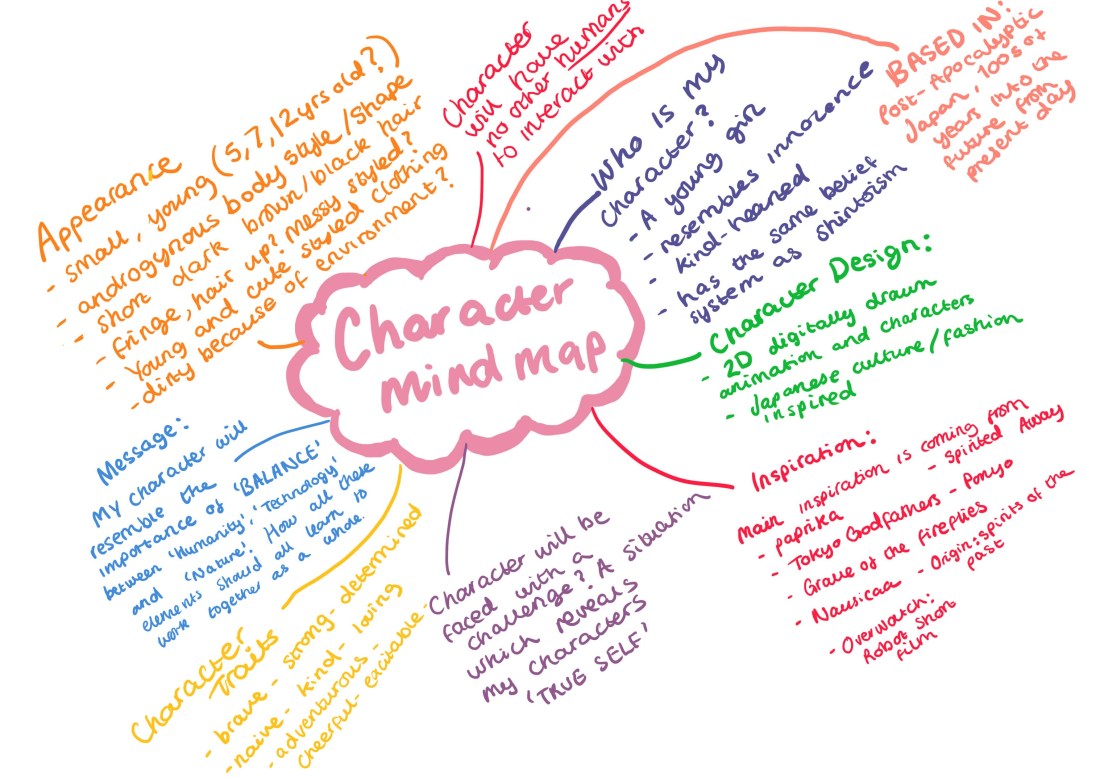 Character
mind map
Appearance
- small, young (5,7,12yrs old?)
- androgynous body style/shape
- short dark brown/black hair
- fringe, hair up? messy styled?
- Young and cute styled clothing
- dirty because of environment?
Character
will have
no other humans
to interact with
BASED IN:
Post-Apocalyptic
Japan, 100s of
years into the
future from
present day
Who is my
character?
- A young girl
- resembles innocence
- kind-hearted
- has the same belief
system as shintoism
Character Design:
- 2D digitally drawn
animation and characters
- Japanese culture/fashion
inspired
Inspiration:
Main inspiration is coming from
- Paprika - Spirited Away
- Tokyo Godfathers - Ponyo
- Grave of the fireflies
- Nausicaa - Origin: spirits of the
past
- Overwatch:
Robot short
film
Character will be
faced with a
challenge? A situation
which reveals
my characters
'TRUE SELF'
Character
Traits
- brave - strong - determined
- naive - kind - loving
- adventurous -
cheerful - excitable -
Message:
My character will
resemble the
importance of 'BALANCE'
between 'Humanity', 'Technology'
and 'Nature'. How all these
elements should all learn to
work together as a whole.